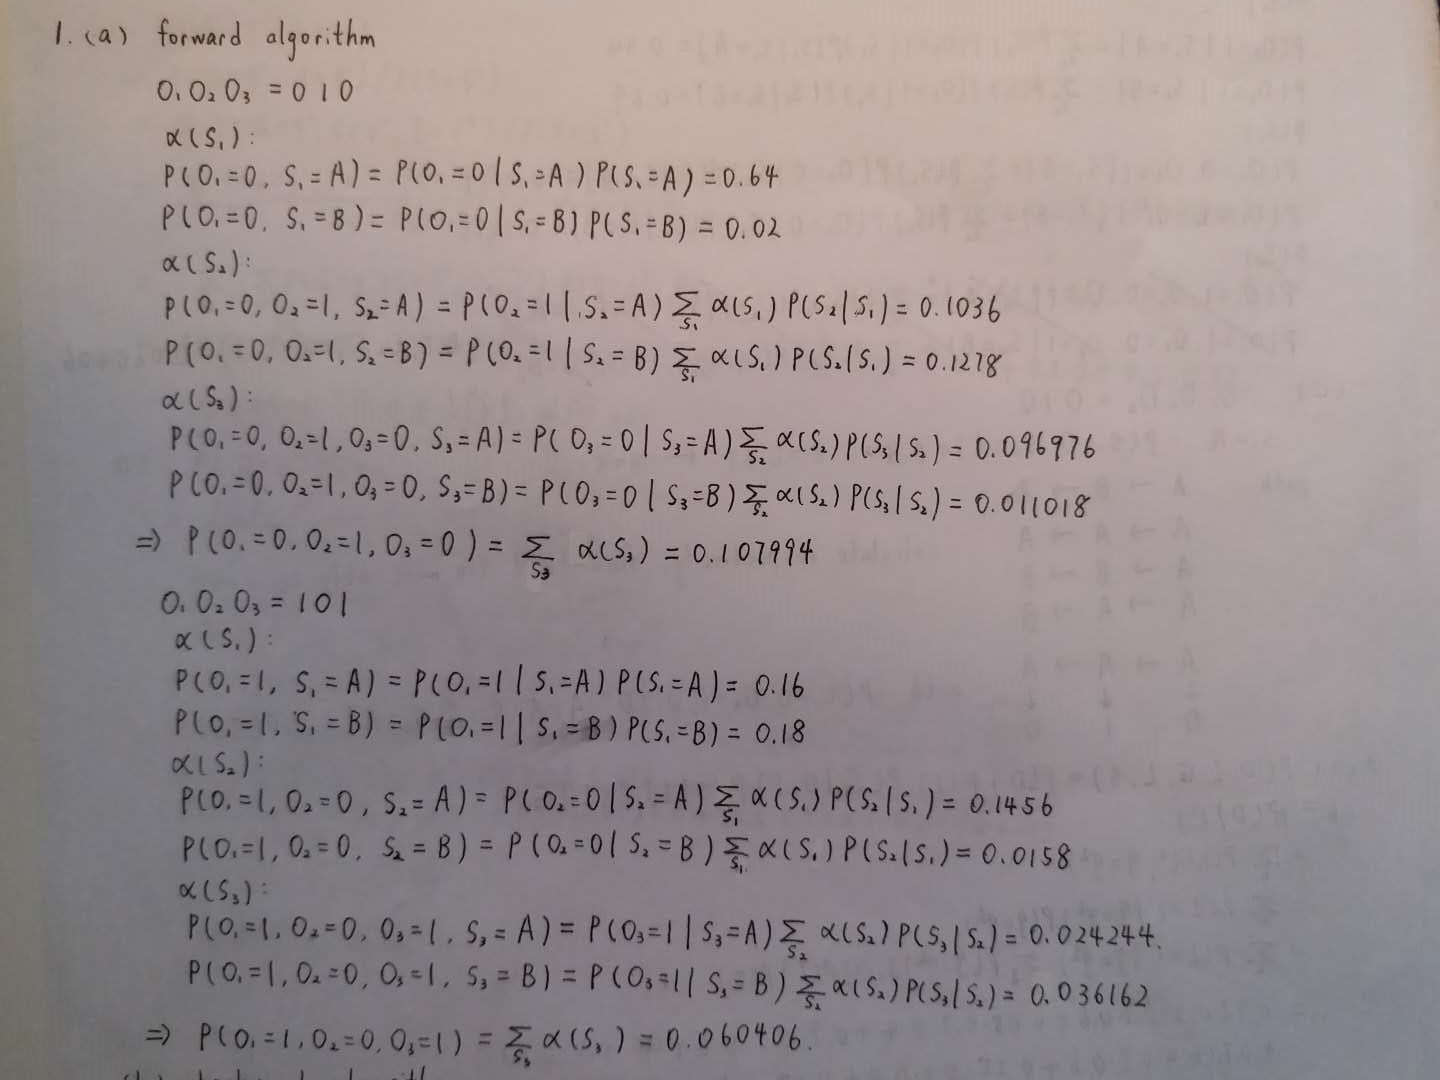 1. (a) forward algorithm
O₁O₂O₃ = 010
α(S₁):
P(O₁=0, S₁=A) = P(O₁=0|S₁=A)P(S₁=A) = 0.64
P(O₁=0, S₁=B) = P(O₁=0|S₁=B)P(S₁=B) = 0.02
α(S₂):
P(O₁=0, O₂=1, S₂=A) = P(O₂=1|S₂=A) Σ_S₁ α(S₁)P(S₂|S₁) = 0.1036
P(O₁=0, O₂=1, S₂=B) = P(O₂=1|S₂=B) Σ_S₁ α(S₁)P(S₂|S₁) = 0.1278
α(S₃):
P(O₁=0, O₂=1, O₃=0, S₃=A) = P(O₃=0|S₃=A) Σ_S₂ α(S₂)P(S₃|S₂) = 0.096976
P(O₁=0, O₂=1, O₃=0, S₃=B) = P(O₃=0|S₃=B) Σ_S₂ α(S₂)P(S₃|S₂) = 0.011018
⇒ P(O₁=0, O₂=1, O₃=0) = Σ_S₃ α(S₃) = 0.107994
O₁O₂O₃ = 101
α(S₁):
P(O₁=1, S₁=A) = P(O₁=1|S₁=A)P(S₁=A) = 0.16
P(O₁=1, S₁=B) = P(O₁=1|S₁=B)P(S₁=B) = 0.18
α(S₂):
P(O₁=1, O₂=0, S₂=A) = P(O₂=0|S₂=A) Σ_S₁ α(S₁)P(S₂|S₁) = 0.1456
P(O₁=1, O₂=0, S₂=B) = P(O₂=0|S₂=B) Σ_S₁ α(S₁)P(S₂|S₁) = 0.0158
α(S₃):
P(O₁=1, O₂=0, O₃=1, S₃=A) = P(O₃=1|S₃=A) Σ_S₂ α(S₂)P(S₃|S₂) = 0.024244.
P(O₁=1, O₂=0, O₃=1, S₃=B) = P(O₃=1|S₃=B) Σ_S₂ α(S₂)P(S₃|S₂) = 0.036162
⇒ P(O₁=1, O₂=0, O₃=1) = Σ_S₃ α(S₃) = 0.060406.